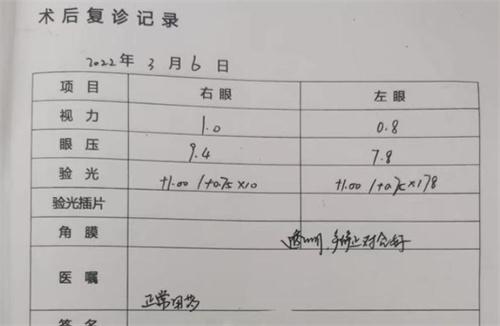 术后复诊记录
2022年 3月 6日
项目 右眼 左眼
视力 1.0 0.8
眼压 9.4 7.8
验光 +1.00/+0.75×10 +1.00/+0.75×178
验光插片
角膜 透明,对合好
医嘱
正常用药
签名